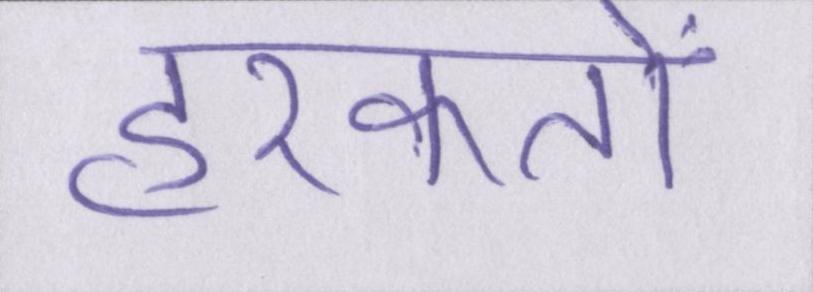 हरकतों